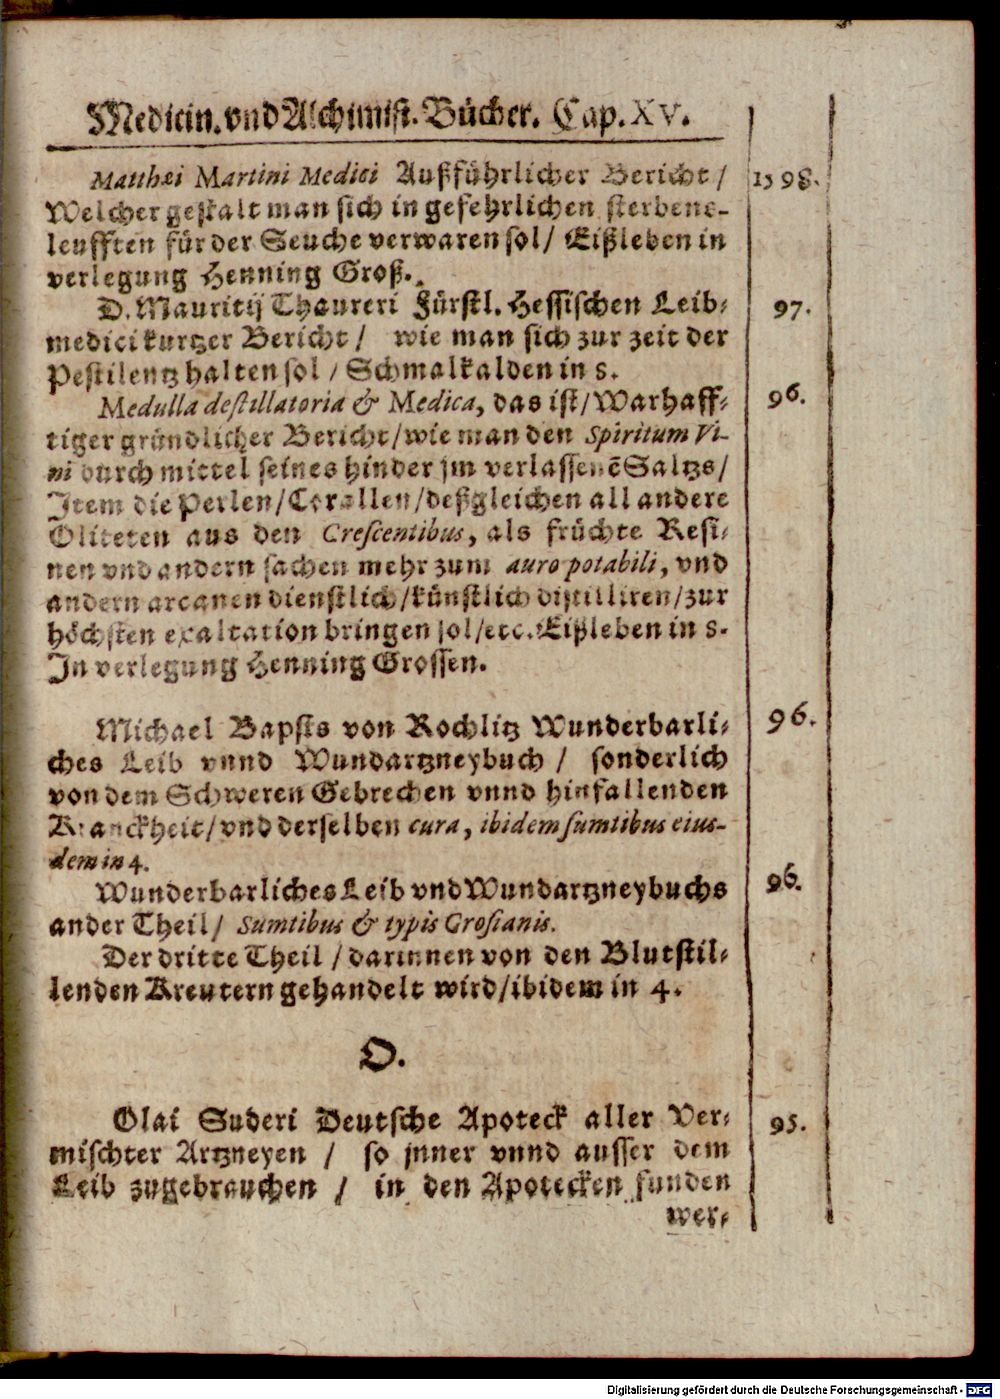 Medicin. vnd Alchimist. Bücher. Cap. XV.
Matthæi Martini Medici Außführlicher Bericht / 1598.
Welcher gestalt man sich in gefehrlichen sterbens-
leufften für der Seuche verwaren sol / Eißleben in
verlegung Henning Groß.
D. Mauritij Thaureri Fürstl. Hessischen Leib- 97.
medici kurtzer Bericht / wie man sich zur zeit der
Pestilentz halten sol / Schmalkalden in 8.
Medulla destillatoria & Medica, das ist / Warhaff- 96.
tiger gründlicher Bericht / wie man den Spiritum Vi-
ni durch mittel seines hinder jm verlassenē Saltzs /
Item die Perlen / Corallen / deßgleichen all andere
Oliteten aus den Crescentibus, als früchte Resi-
nen vnd andern sachen mehr zum auro potabili, vnd
andern arcanen dienstlich / künstlich distilliren / zur
höchsten exaltation bringen sol / etc. Eißleben in 8.
In verlegung Henning Grossen.
Michael Bapsts von Rochlitz Wunderbarli- 96.
ches Leib vnnd Wundartzneybuch / sonderlich
von dem Schweren Gebrechen vnnd hinfallenden
Kranckheit / vnd derselben cura, ibidem sumtibus eius-
dem in 4.
Wunderbarliches Leib vnd Wundartzneybuchs 96.
ander Theil / Sumtibus & typis Grosianis.
Der dritte Theil / darinnen von den Blutstil-
lenden Kreutern gehandelt wird / ibidem in 4.
O.
Olai Suderi Deutsche Apoteck aller Ver- 95.
mischter Artzneyen / so jnner vnnd ausser dem
Leib zugebrauchen / in den Apotecken funden
wer-
Digitalisierung gefördert durch die Deutsche Forschungsgemeinschaft - DFG